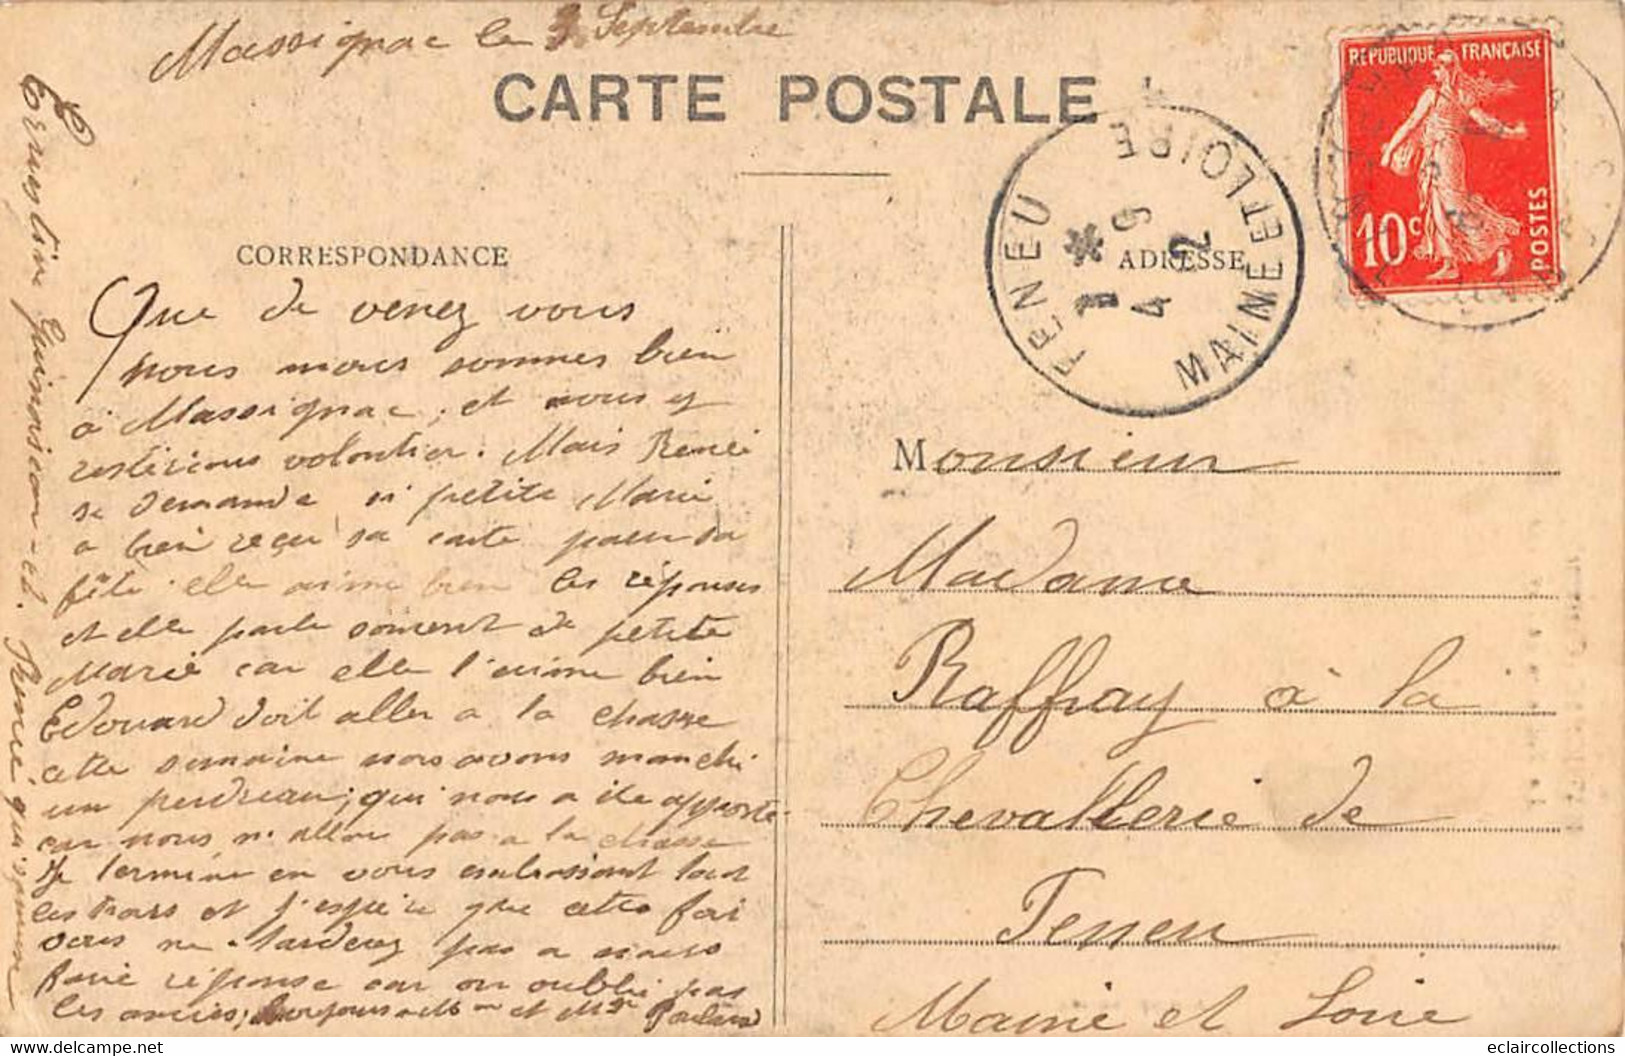 Massignac le 9 Septembre
CARTE POSTALE
REPUBLIQUE FRANÇAISE
10c
POSTES
FENEU
MAINE ET LOIRE
CORRESPONDANCE
ADRESSE
Que de venez vous
nous nous sommes bien
à Massignac, et nous y
resterions volontier. Mais Renée
se demande si petite Marie
a bien reçu sa carte pour sa
fête. elle aime bien les réponses
et elle parle souvent de petite
Marie car elle l'aime bien
Edouard doit aller a la chasse
cette semaine nous avons
un perdreau, qui nous a été apporté
car nous n'allon pas a la chasse
Je termine en vous embrassant tous
les trois et j'espère que cette foi
vous ne tarderez pas a nous
faire réponse car on oublie pas
les amies, bonjours a Mme et Mr
Ernestine et Renée qui
Monsieur
Madame
Raffray à la
Chevallerie de
Feneu
Maine et Loire
eclaircollections